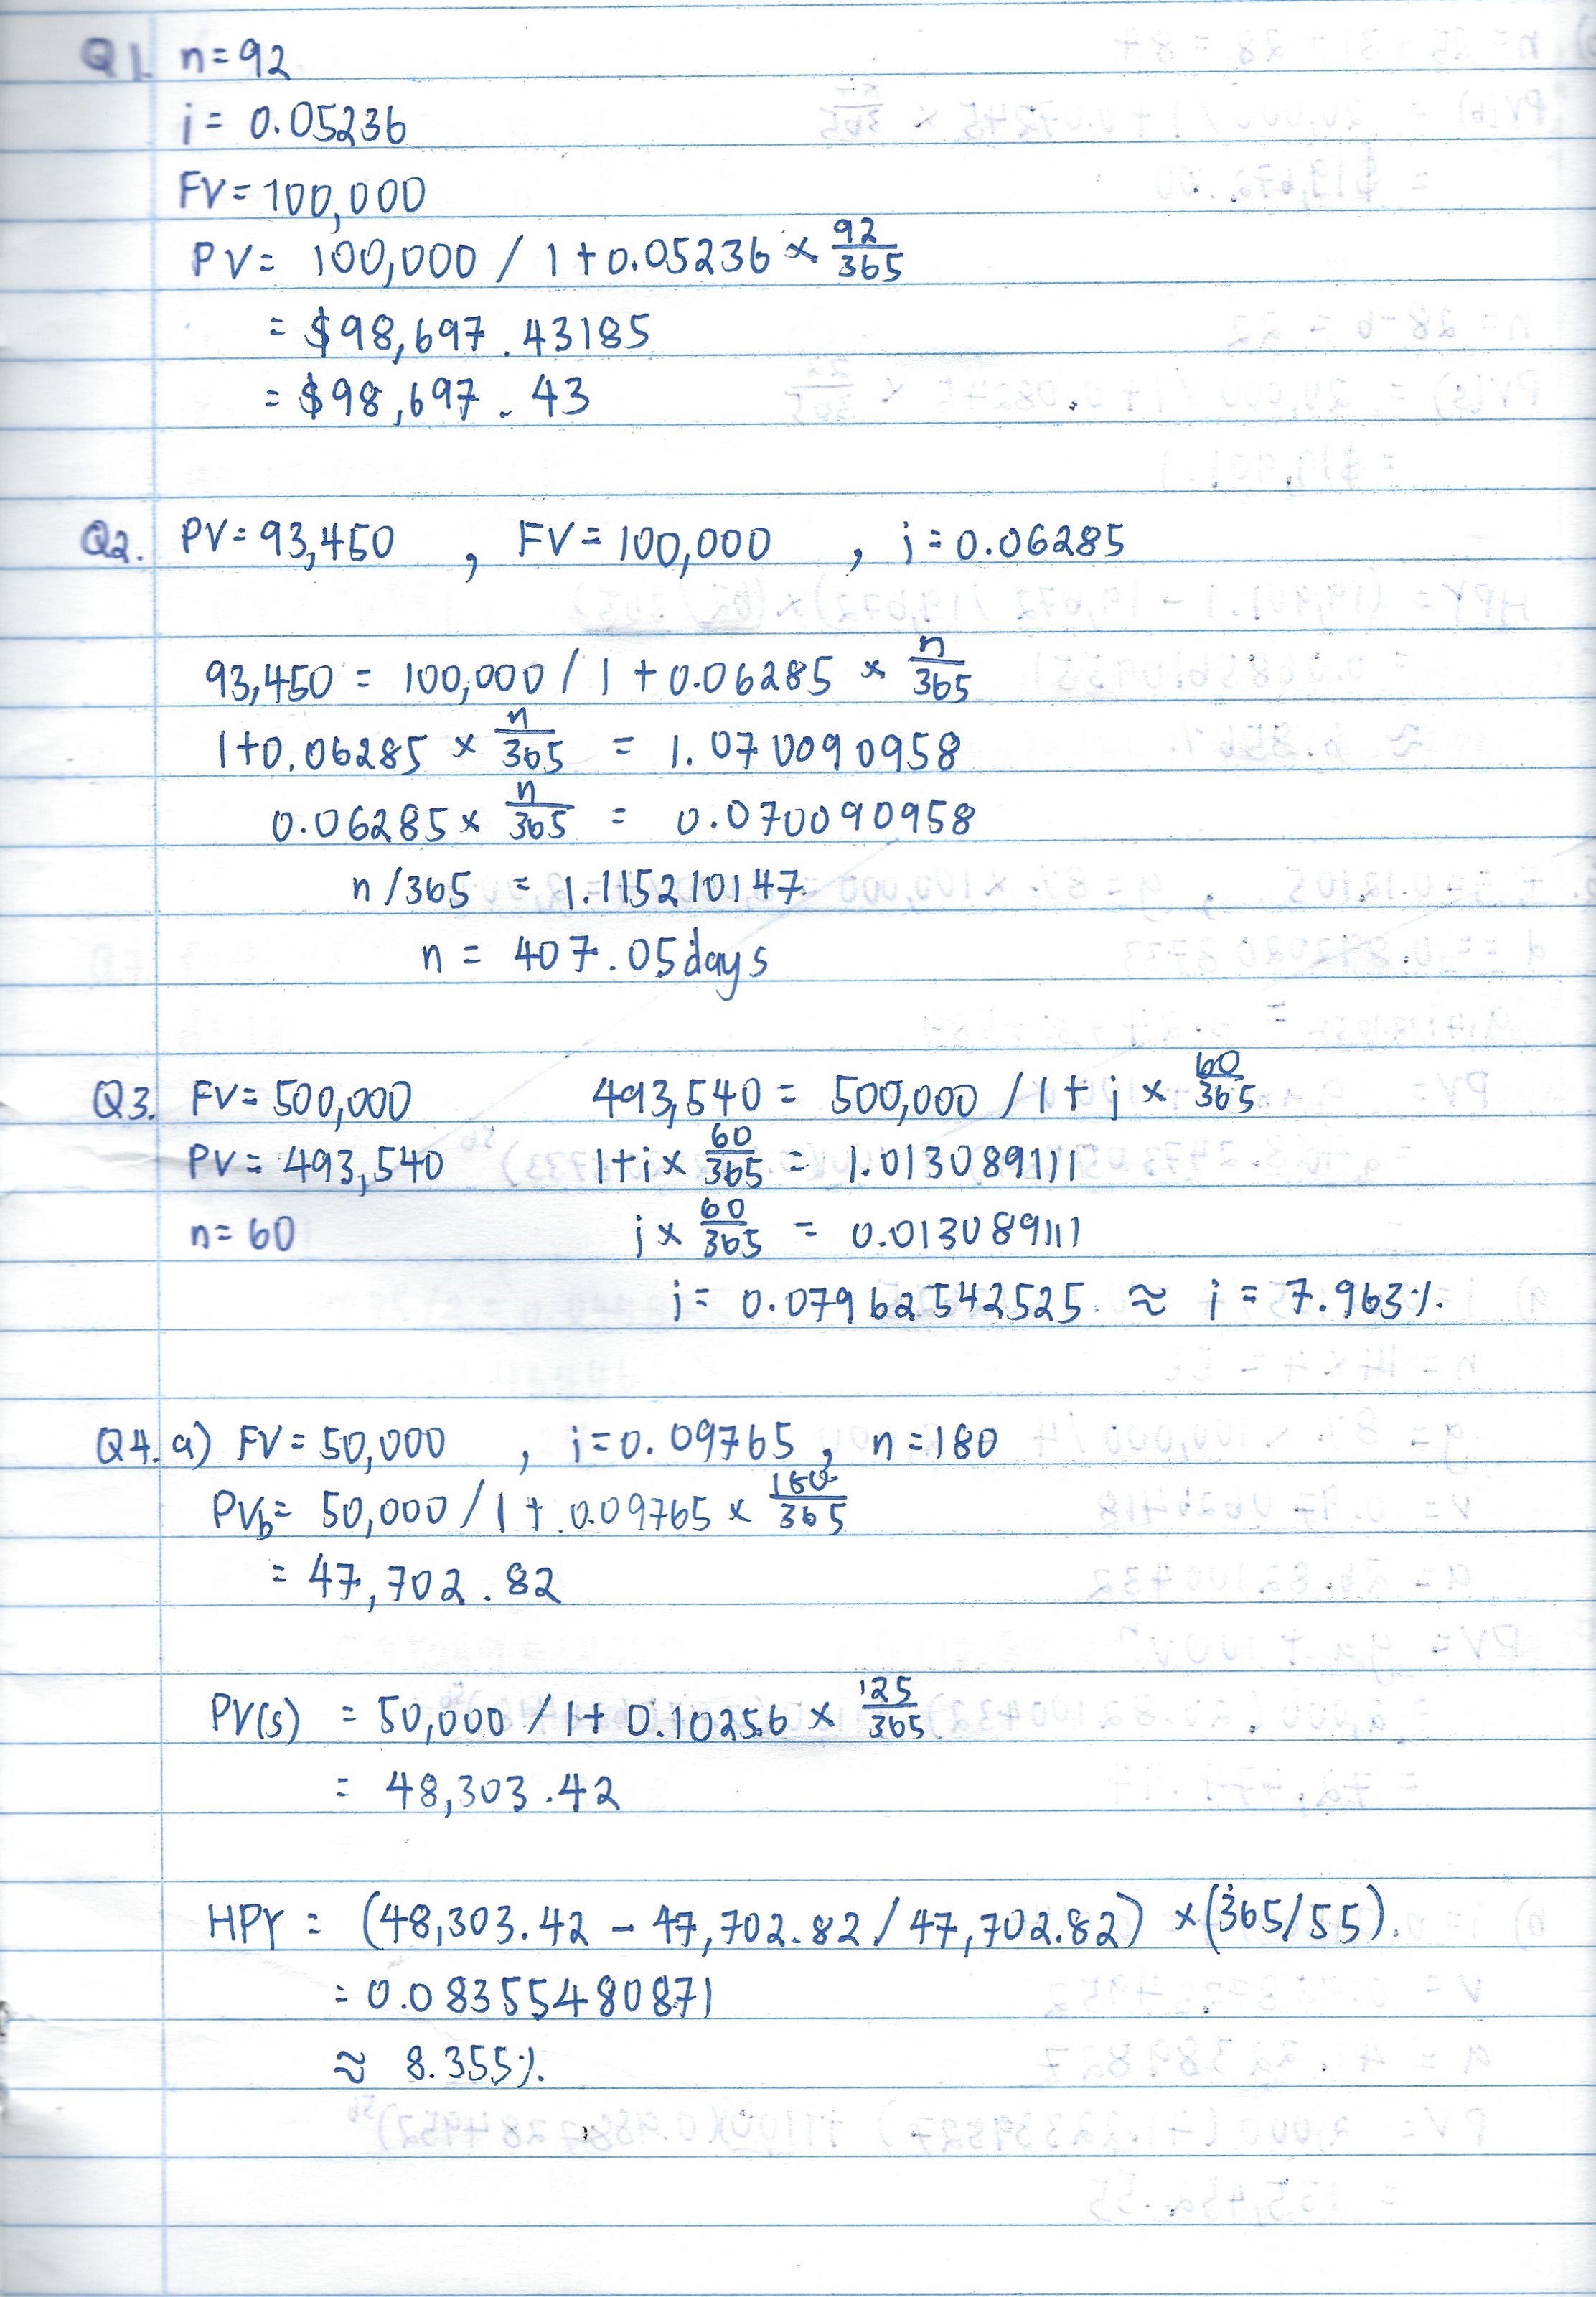 Q1. n=92
i = 0.05236
FV = 100,000
PV = 100,000 / 1 + 0.05236 × 92/365
= $98,697.43185
= $98,697.43
Q2. PV = 93,450 , FV = 100,000 , i = 0.06285
93,450 = 100,000 / 1 + 0.06285 × n/365
1+0.06285 × n/365 = 1.070090958
0.06285 × n/365 = 0.070090958
n/365 = 1.115210147
n = 407.05 days
Q3. FV = 500,000 493,540 = 500,000 / 1 + i × 60/365
PV = 493,540 1+i× 60/365 = 1.013089111
n = 60 i × 60/365 = 0.013089111
i = 0.07962542525 ≈ i = 7.963%.
Q4. a) FV = 50,000 , i = 0.09765 , n = 180
PVb = 50,000 / 1 + 0.09765 × 180/365
= 47,702.82
PV(s) = 50,000 / 1 + 0.10256 × 125/365
= 48,303.42
HPY = (48,303.42 – 47,702.82 / 47,702.82) × (365/55).
= 0.08355480871
≈ 8.355%.